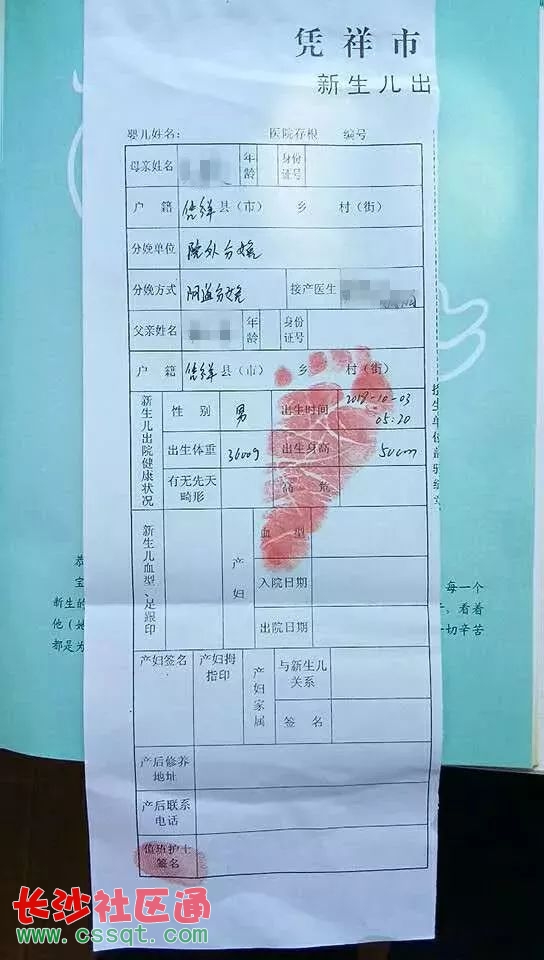 凭祥市
新生儿出
婴儿姓名： 医院存根 编号
母亲姓名 年龄 身份证号
户籍 凭祥县（市） 乡 村（街）
分娩单位 院外分娩
分娩方式 阴道分娩 接产医生
父亲姓名 年龄 身份证号
户籍 凭祥县（市） 乡 村（街）
新生儿出院健康状况
性别 男 出生时间 2018-10-03 05:20
出生体重 3600g 出生身高 50cm
有无先天畸形
新生儿血型、足跟印
产妇
血型
入院日期
出院日期
产妇签名 产妇拇指印 产妇家属 与新生儿关系
签名
产后修养地址
产后联系电话
值班护士签名
每一个
新生的
看着
他（她
一切辛苦
都是为
长沙社区通
www.cssqt.com